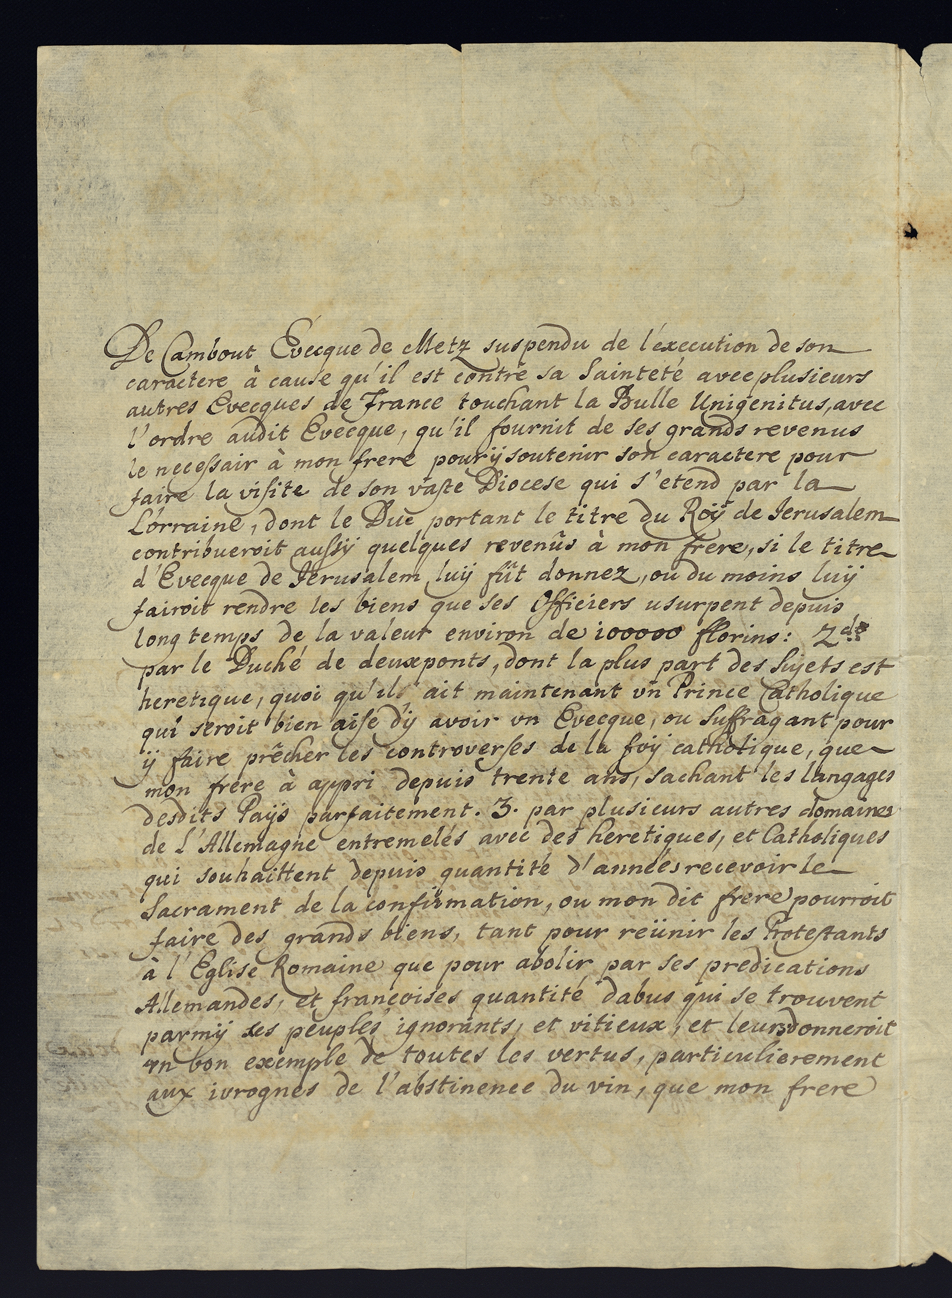 De Cambout Evecque de Metz suspendu de l'execution de son
caractere à cause qu'il est contre sa Sainteté avec plusieurs
autres Evecques de France touchant la Bulle Unigenitus, avec
l'ordre audit Evecque, qu'il fournit de ses grands revenus
le necessair à mon frere pour ÿ soutenir son caractere pour
faire la visite de son vaste Diocese qui s'etend par la
Lorraine, dont le Duc, portant le titre du Roÿ de Jerusalem
contribueroit aussÿ quelques revenûs à mon frere, si le titre
d'Evecque de Jerusalem luÿ fût donnez, ou du moins luÿ
fairoit rendre les biens que ses Officiers usurpent depuis
long temps de la valeur environ de 100000 fflorins: 2.do
par le Duché de deuxponts, dont la plus part des sujets est
heretique, quoi qu'ils ait maintenant vn Prince Catholique
qui seroit bien aise d'ÿ avoir vn Evecque, ou Suffragant pour
ÿ faire prêcher les controverses de la foÿ catholique, que
mon frere à appri depuis trente ans, sachant les langages
desdits Païs parfaitement. 3. par plusieurs autres domaines
de l'Allemagne entremelés avec des heretiques, et Catholiques
qui souhaittent depuis quantité d'années recevoir le
Sacrament de la confirmation, ou mon dit frere pourroit
faire des grands biens, tant pour reünir les Protestants
à l'Eglise Romaine que pour abolir par ses predications
Allemandes, et françoises quantité d'abus qui se trouvent
parmÿ les peuples ignorants, et vitieux, et leurs donneroit
vn bon exemple de toutes les vertus, particulierement
aux ivrognes de l'abstinence du vin, que mon frere